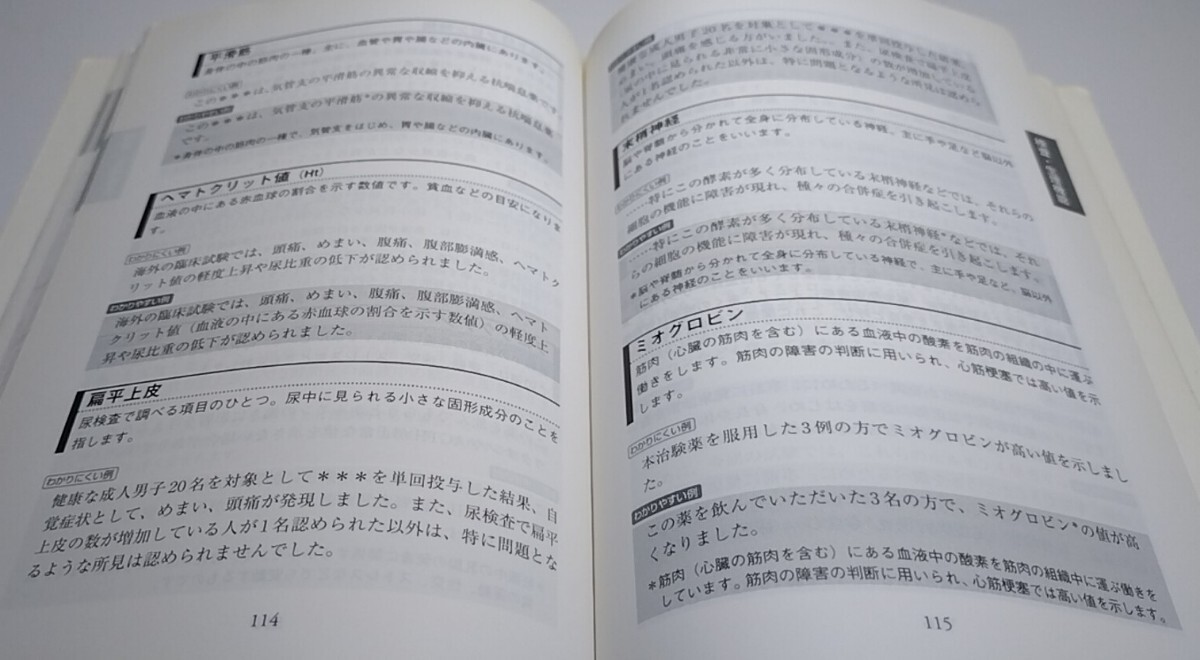 平滑筋
身体の中の筋肉の一種、主に、血管や胃や腸などの内臓にあります。
わかりにくい例
この＊＊＊は、気管支の平滑筋の異常な収縮を抑える抗喘息薬です
わかりやすい例
この＊＊＊は、気管支の平滑筋*の異常な収縮を抑える抗喘息薬
です。
*身体の中の筋肉の一種で、気管支をはじめ、胃や腸などの内臓にあります。
ヘマトクリット値（Ht）
血液の中にある赤血球の割合を示す数値です。貧血などの目安になりま
す。
わかりにくい例
海外の臨床試験では、頭痛、めまい、腹痛、腹部膨満感、ヘマトク
リット値の軽度上昇や尿比重の低下が認められました。
わかりやすい例
海外の臨床試験では、頭痛、めまい、腹痛、腹部膨満感、ヘマト
クリット値（血液の中にある赤血球の割合を示す数値）の軽度上
昇や尿比重の低下が認められました。
扁平上皮
尿検査で調べる項目のひとつ。尿中に見られる小さな固形成分のことを
指します。
わかりにくい例
健康な成人男子20名を対象として＊＊＊を単回投与した結果、自
覚症状として、めまい、頭痛が発現しました。また、尿検査で扁平
上皮の数が増加している人が1名認められた以外は、特に問題とな
るような所見は認められませんでした。
114
わかりやすい例
健康な成人男子20名を対象として＊＊＊を単回投与した結果、
めまい、頭痛を感じる方がいました。また、尿検査で扁平上皮
（尿の中に見られる非常に小さな固形成分）の数が増加している
人が1名認められた以外は、特に問題となるような所見は認めら
れませんでした。
末梢神経
脳や脊髄から分かれて全身に分布している神経、主に手や足など脳以外
にある神経のことをいいます。
わかりにくい例
……特にこの酵素が多く分布している末梢神経などでは、それらの
細胞の機能に障害が現れ、種々の合併症を引き起こします。
わかりやすい例
……特にこの酵素が多く分布している末梢神経*などでは、それ
らの細胞の機能に障害が現れ、種々の合併症を引き起こします。
*脳や脊髄から分かれて全身に分布している神経で、主に手や足など、脳以外
にある神経のことをいいます。
ミオグロビン
筋肉（心臓の筋肉を含む）にある血液中の酸素を筋肉の組織の中に運ぶ
働きをします。筋肉の障害の判断に用いられ、心筋梗塞では高い値を示
します。
わかりにくい例
本治験薬を服用した3例の方でミオグロビンが高い値を示しまし
た。
わかりやすい例
この薬を飲んでいただいた3名の方で、ミオグロビン*の値が高
くなりました。
*筋肉（心臓の筋肉を含む）にある血液中の酸素を筋肉の組織中に運ぶ働きを
しています。筋肉の障害の判断に用いられ、心筋梗塞では高い値を示します。
115